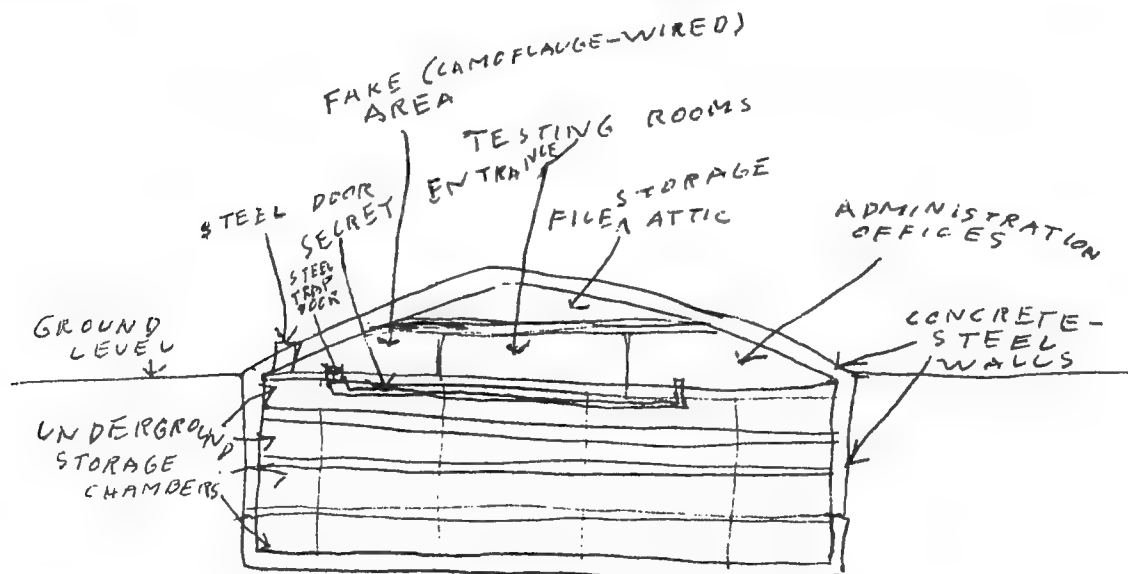 FAKE (CAMOFLAUGE-WIRED)
AREA
TESTING ROOMS
STEEL DOOR
SECRET ENTRANCE
STEEL
TRAP
DOOR
STORAGE
FILES ATTIC
ADMINISTRATION
OFFICES
GROUND
LEVEL
CONCRETE-
STEEL
WALLS
UNDERGROUND
STORAGE
CHAMBERS